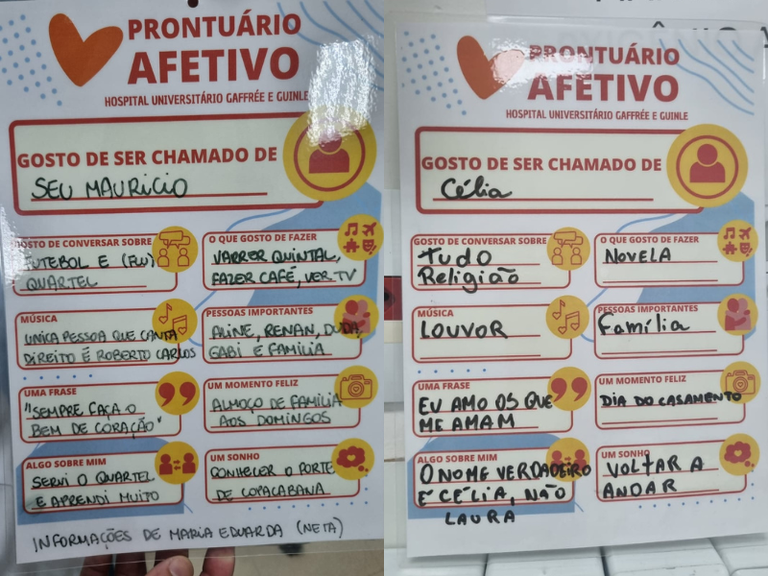 PRONTUÁRIO
AFETIVO
HOSPITAL UNIVERSITÁRIO GAFFRÉE E GUINLE
GOSTO DE SER CHAMADO DE
SEU MAURICIO
GOSTO DE CONVERSAR SOBRE
FUTEBOL E (FLU)
QUARTEL
O QUE GOSTO DE FAZER
VARRER QUINTAL,
FAZER CAFÉ, VER TV
MÚSICA
UNICA PESSOA QUE CANTA
DIREITO É ROBERTO CARLOS
PESSOAS IMPORTANTES
ALINE, RENAN, DUDA,
GABI E FAMILIA
UMA FRASE
"SEMPRE FAÇA O
BEM DE CORAÇÃO"
UM MOMENTO FELIZ
ALMOÇO DE FAMILIA
AOS DOMINGOS
ALGO SOBRE MIM
SERVI O QUARTEL
E APRENDI MUITO
UM SONHO
CONHECER O FORTE
DE COPACABANA
INFORMAÇÕES DE MARIA EDUARDA (NETA)
PRONTUÁRIO
AFETIVO
HOSPITAL UNIVERSITÁRIO GAFFRÉE E GUINLE
GOSTO DE SER CHAMADO DE
Célia
GOSTO DE CONVERSAR SOBRE
TUDO
Religião
O QUE GOSTO DE FAZER
NOVELA
MÚSICA
LOUVOR
PESSOAS IMPORTANTES
Família
UMA FRASE
EU AMO OS QUE
ME AMAM
UM MOMENTO FELIZ
DIA DO CASAMENTO
ALGO SOBRE MIM
O NOME VERDADEIRO
É CÉLIA, NÃO
LAURA
UM SONHO
VOLTAR A
ANDAR